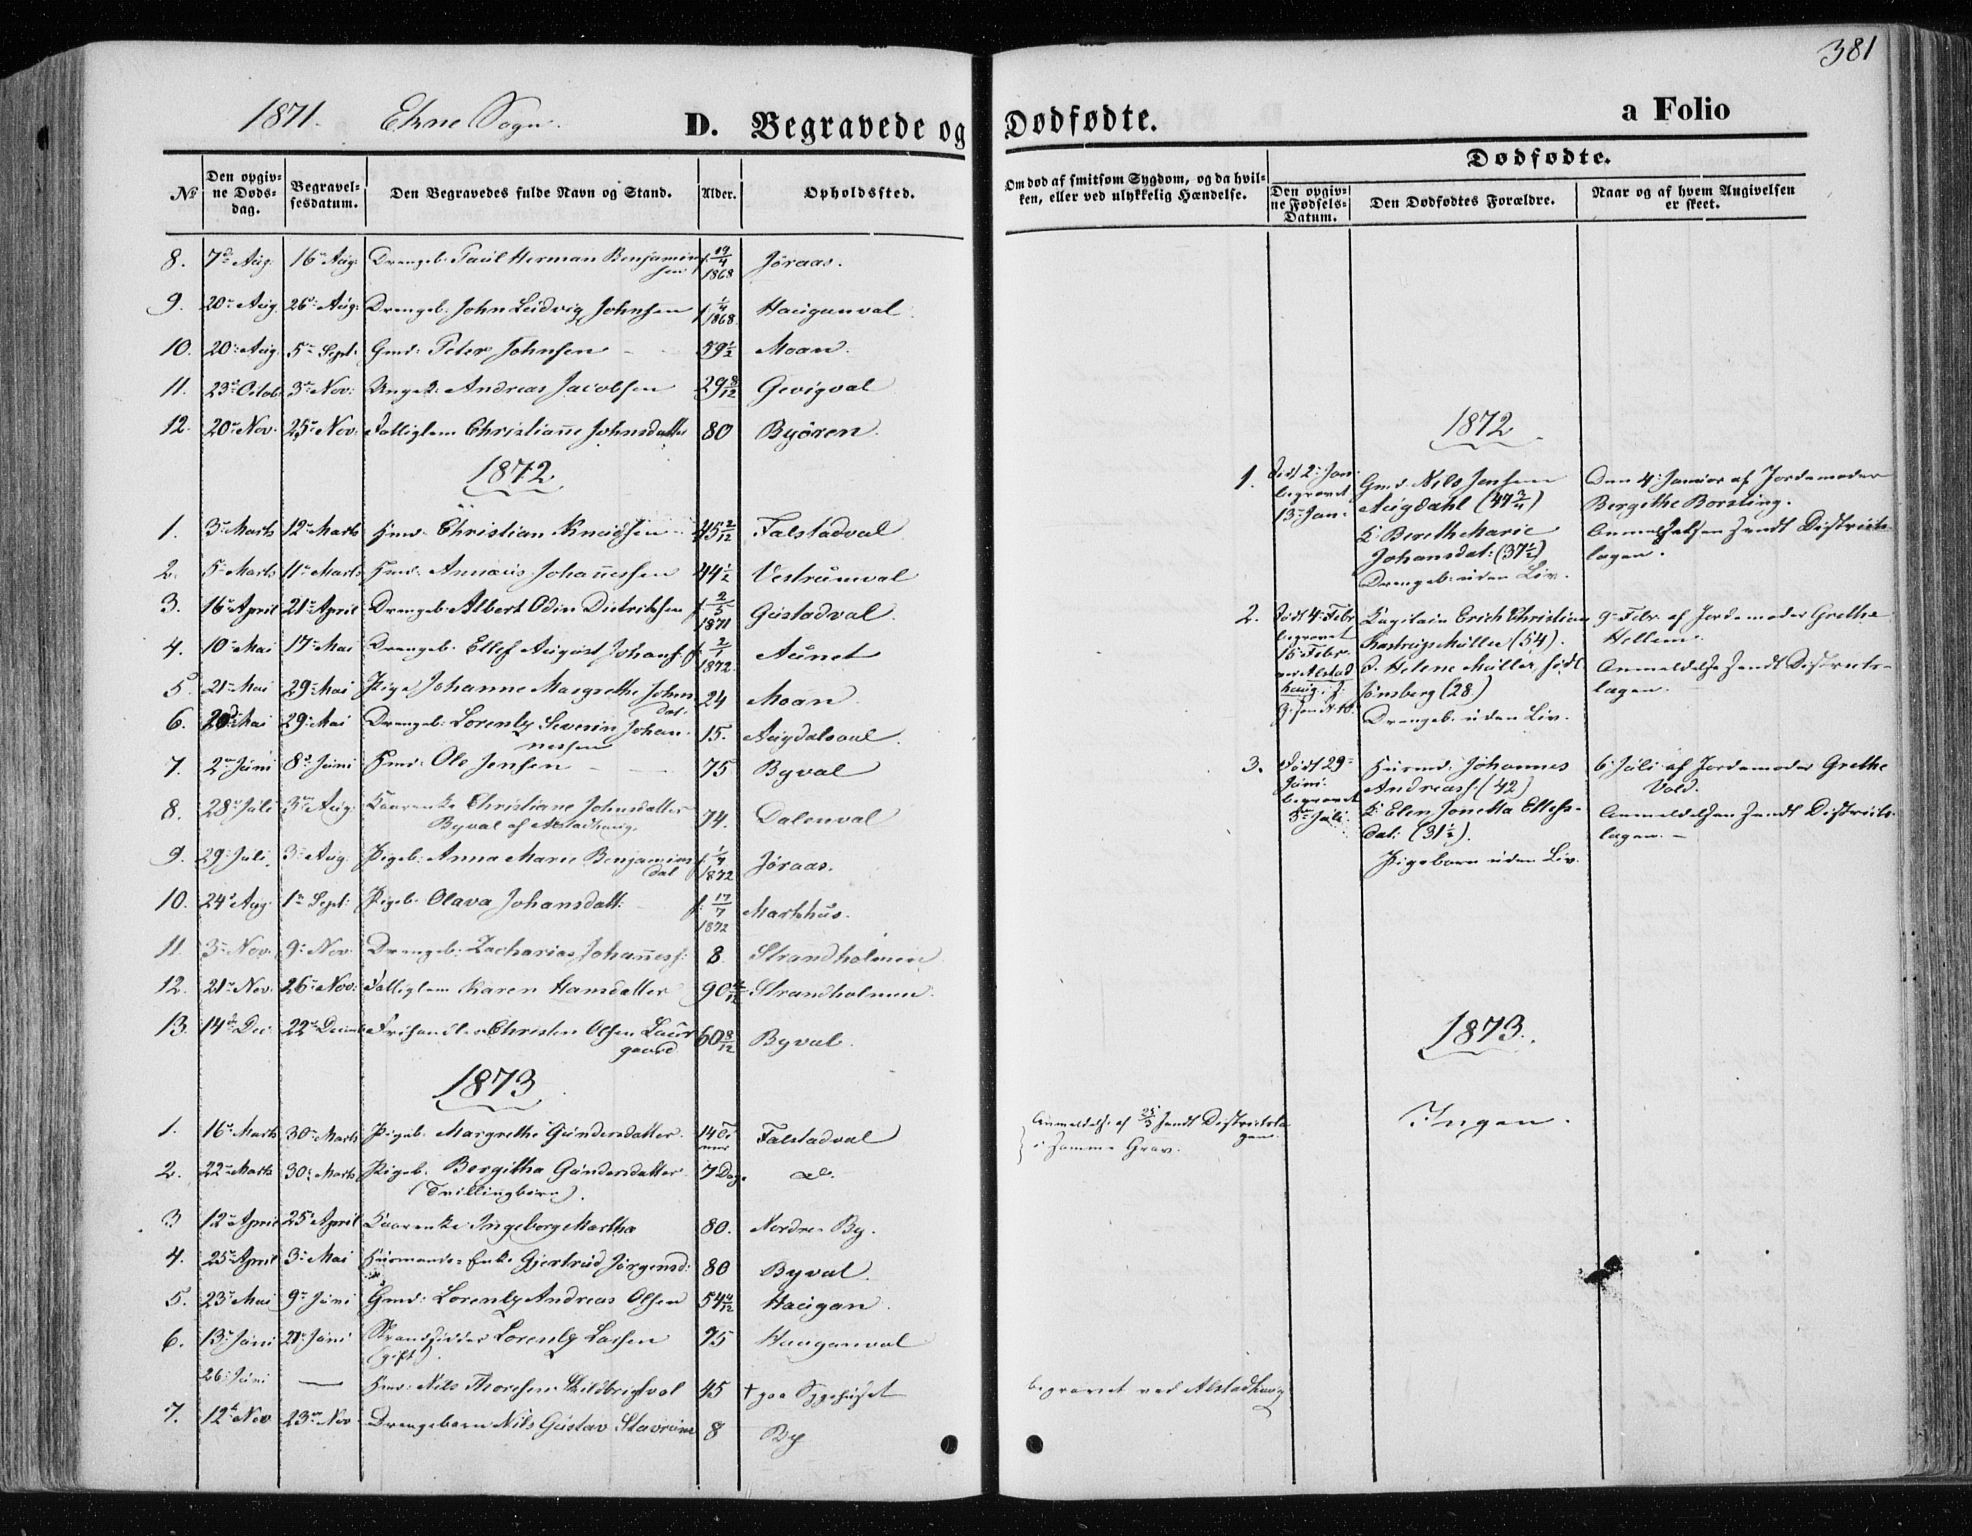 381
1871. Ekne Sogn.
D. Begravede og Dødfødte.
a Folio
No
Den opgivne Døds-dag.
Begravel-sesdatum.
Den Begravedes fulde Navn og Stand.
Alder.
Opholdssted.
Om død af smitsom Sygdom, og da hvil-
ken, eller ved ulykkelig Hændelse.
Dødfødte.
Den opgiv-ne Fødsels-Datum.
Den Dødfødtes Forældre.
Naar og af hvem Angivelsen
er skeet.
8. 7de Aug. 16de Aug. Drengeb. Paul Herman Benjamin
sen f. 19/4 1868 Jøraas.
9. 20de Aug. 26de Aug. Drengeb. John Ludvig Johnsen f. 1/4 1868 Hauganval.
10. 20de Aug. 5te Sept. Gmd. Peter Johnsen 59½ Moan.
11. 23de Octob. 3de Nov. Ungk. Andreas Jacobsen 29 8/12 Gevigval
12. 20de Nov. 25de Nov. Fattiglem Christiane Johnsdatter 80 Byören.
1872
1. 3de Marts 12te Marts Hmd. Christian Knudsen 45 2/12 Falstadval
2. 5te Marts 11te Marts Hmd. Annæus Johannessen 44½ Vestrumval
3. 16de April 21de April Drengeb. Albert Odin Dietrichsen f. 2/5 1871 Gustadval.
4. 10de Mai 17de Mai Drengeb. Ellef August Johans. f. 2/1 1872. Aunet
5. 21de Mai 29de Mai Pige Johanne Margrethe John
dat. 24 Moan.
6. 20de Mai 29de Mai Drengeb. Lorentz Severin Johan-
nessen 15. Augdalsval.
7. 2den Juni 8de Juni Hmd. Ole Jensen 75 Byval
8. 28de Juli 3de Aug. Kaarenke Christiane Johnsdatter
Byval af Alstadhaug. 74. Dalenval
9. 29. Juli 3de Aug. Pigeb. Anna Marie Benjamins
dat. f. 1/4 1872 Jøraas.
10. 24de Aug. 1ste Sept. Pigeb. Olava Johansdatt. f. 17/7 1872 Markhus.
11. 3de Nov. 9de Nov. Drengeb. Zacharias Johanness. 8 Strandholmen
12. 21de Nov. 26de Nov. Fattiglem Karen Hansdatter 90 Strandholmen.
13. 14de Dec. 22de Decemb. Frihandler Christen Olsen Laur-
gaard 60 8/12 Byval.
1873
1. 16de Marts 30de Marts Pigeb. Margrethe Gundersdatter. 14 Ti
mer Falstadval Anmeldelse af 25/3 sendt Districtslæ
gen.
2. 22de Marts 30de Marts Pigeb. Bergitha Gundersdatter 7 Dage do. i samme Grav.
(Tvillingbørn).
3 12te April 25de April Kaarenke Ingeborg Martha 80. Nordre By.
4. 25de April 3de Mai Husmands Enke Gjertrud Jørgensd. 80 Byval.
5. 23de Mai 9de Juni Gmd. Lorentz Andreas Olsen 54 4/12 Haugan.
6. 13de Juni 21de Juni Strandsidder Lorentz Larsen
(gift). 75 Hauganval
26. Juni — Hmd. Nils Thoresen Skildbrigtval 45 † paa Sygehuset begravet ved Alstadhaug
7. 12te Nov 23de Nov Drengebarn Nils Gustav Stavrum 8 By
1872.
1. Født 2. Jan.
begravet
13de Jan. Gmd. Nils Jensen
Augdahl (47¾)
K. Berethe Marie
Johansdat. (37½)
Drengeb. uden Liv. Den 4. Januar af Jordemoder
Bergithe Borsting.
Anmeldelsen sendt Districts-
lægen.
2. Født 4. Febr.
begravet
16. Febr.
ved Alstad
haug Kapitain Erich Christian
Kastrup Müller (54).
Helene Müller, født
Jønsberg (28.)
Drengeb. uden Liv. 9. Febr. af Jordemoder Grethe
Hellem.
Anmeldelse sendt Districts-
lægen.
3. Født 29de
Juni
begravet
5te Juli Husmd. Johannes
Andreass. (42)
K. Elen Jonetta Ellefs-
dat. (31½).
Pigebarn uden Liv. 6. Juli af Jordemoder Grethe
Vold.
Anmeldelsen sendt Districts-
lægen.
1873.
Ingen.